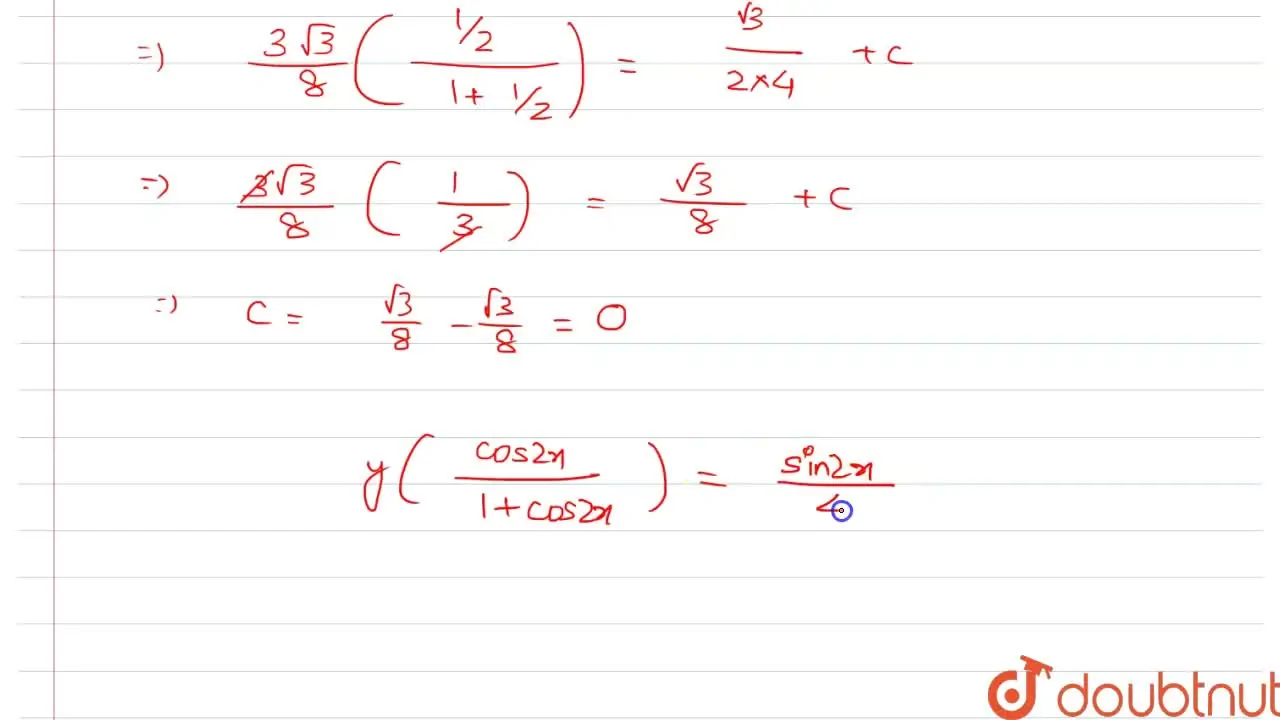 =) 3√3/8 ( 1/2 / 1+ 1/2 ) = √3 / 2×4 + C
=) 3√3/8 ( 1/3 ) = √3/8 + C
=) C = √3/8 - √3/8 = 0
y ( cos2x / 1+cos2x ) = sin2x / 4
doubtnut